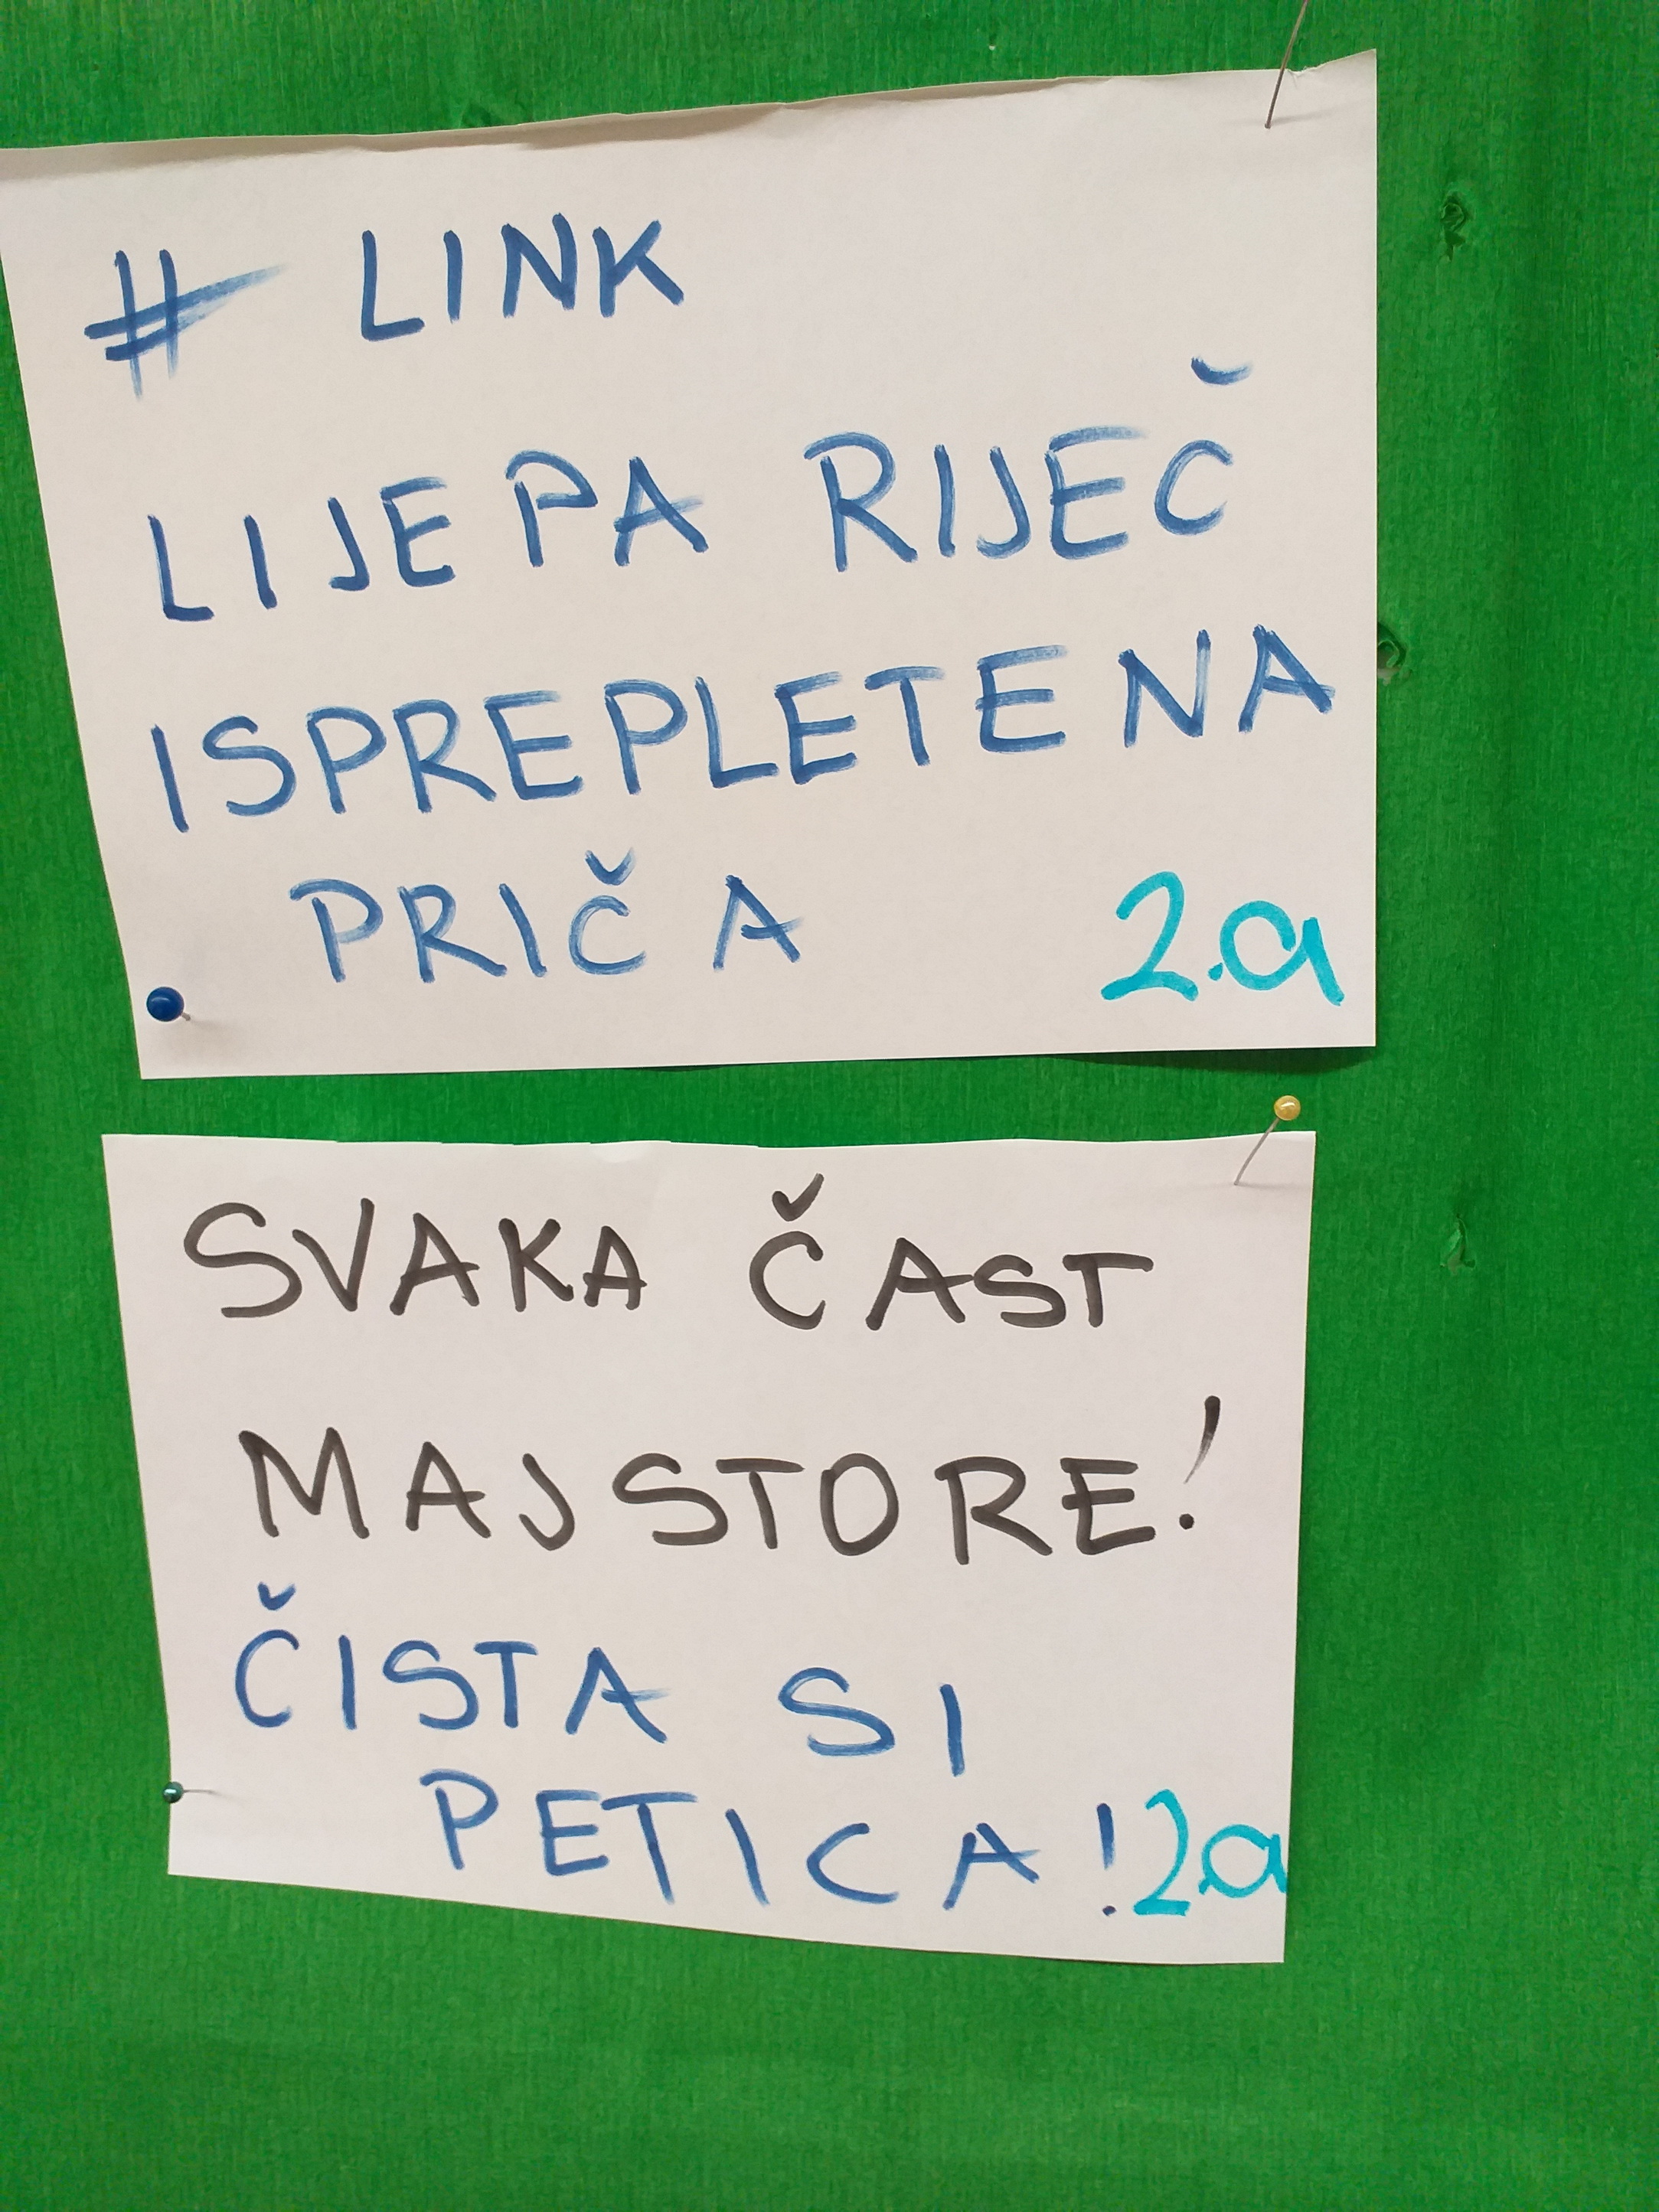 # LINK
LIJEPA RIJEČ
ISPREPLETENA
PRIČA 2.a
SVAKA ČAST
MAJSTORE!
ČISTA SI
PETICA! 2.a